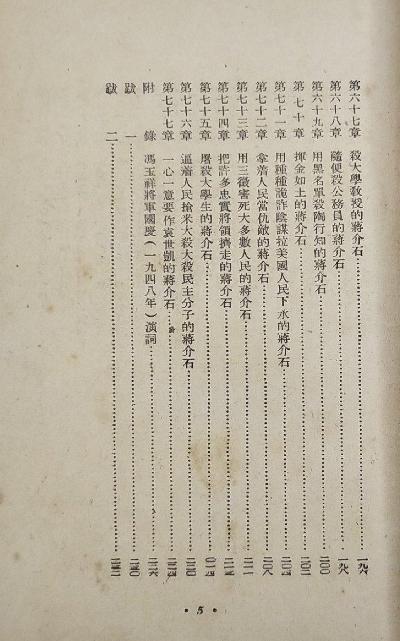 第六十七章 殺大學教授的蔣介石……一九六
第六十八章 隨便殺公務員的蔣介石……一九八
第六十九章 用黑名單殺陶行知的蔣介石……二〇〇
第七十章 揮金如土的蔣介石……二〇二
第七十一章 用種種詭詐陰謀拉美國人民下水的蔣介石……二〇四
第七十二章 拿着人民當仇敵的蔣介石……二〇八
第七十三章 用三徵害死大多數人民的蔣介石……二一一
第七十四章 把許多忠實將領擠走的蔣介石……二一三
第七十五章 屠殺大學生的蔣介石……
第七十六章 逼着人民搶米大殺大殺民主分子的蔣介石……
第七十七章 一心一意要作袁世凱的蔣介石……二二四
附錄 馮玉祥將軍國慶(一九四八年)演詞……二二六
跋 一……二三〇
跋 二……二三二
• 5 •